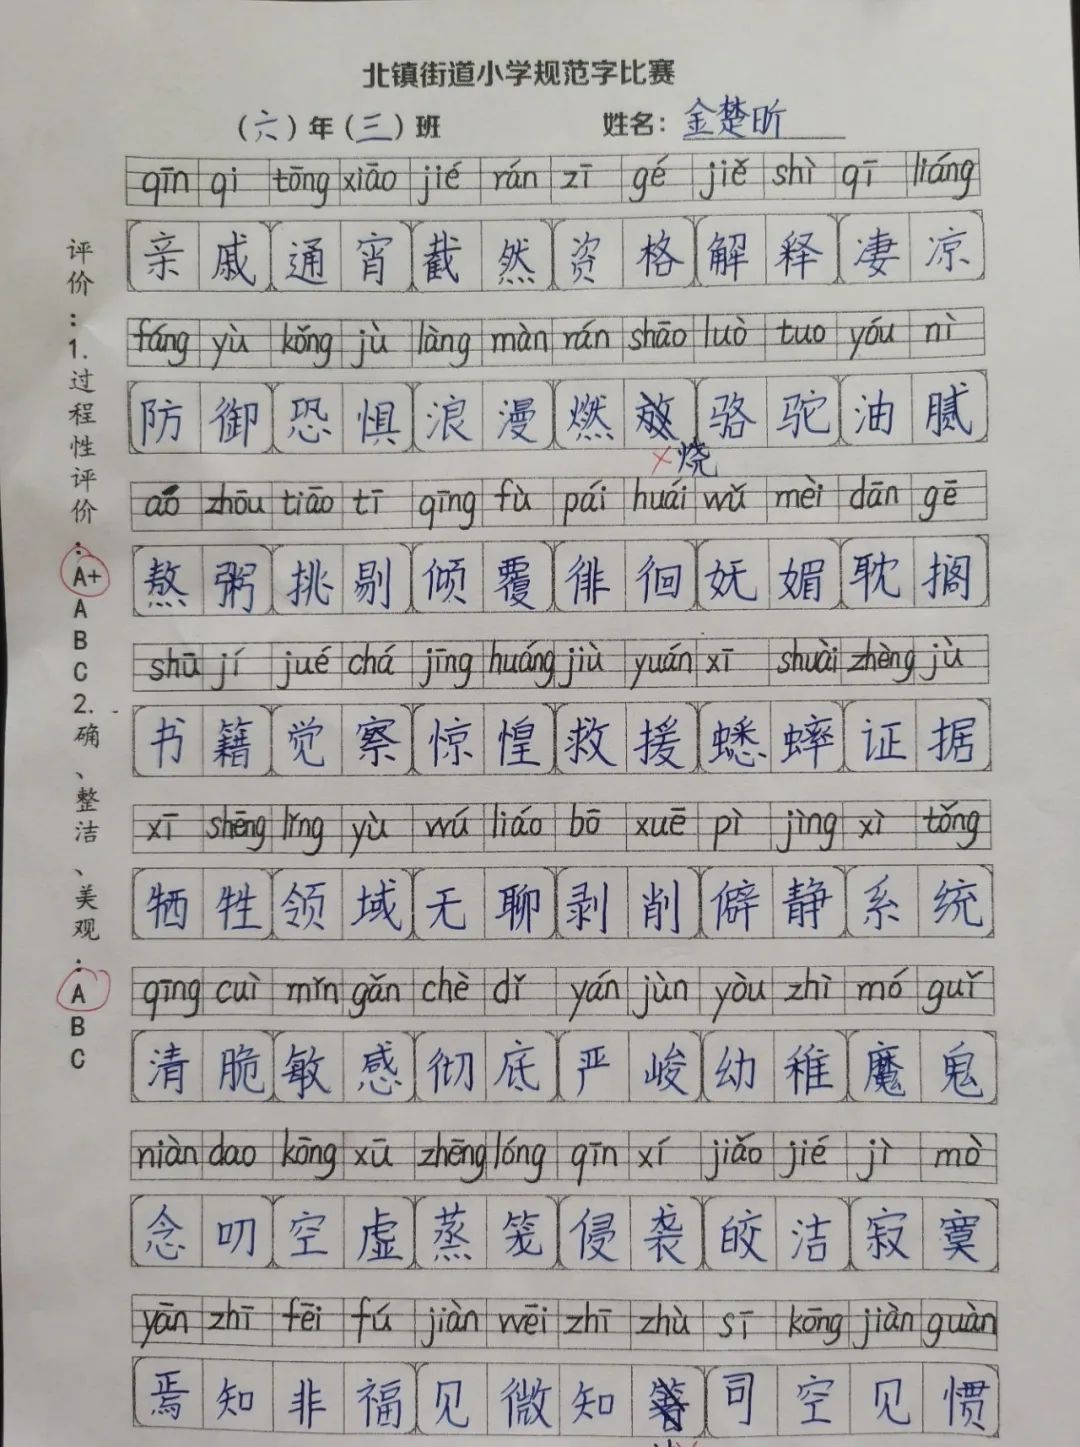 北镇街道小学规范字比赛
（六）年（三）班 姓名：金楚昕
qīn qi tōng xiāo jié rán zī gé jiě shì qī liáng
亲戚通宵截然资格解释凄凉
fáng yù kǒng jù làng màn rán shāo luò tuo yóu nì
防御恐惧浪漫燃骆驼油腻
×烧
áo zhōu tiāo tī qīng fù pái huái wǔ mèi dān gē
熬粥挑剔倾覆徘徊妩媚耽搁
shū jí jué chá jīng huáng jiù yuán xī shuài zhèng jù
书籍觉察惊惶救援蟋蟀证据
xī shēng lǐng yù wú liáo bō xuē pì jìng xì tǒng
牺牲领域无聊剥削僻静系统
qīng cuì mǐn gǎn chè dǐ yán jùn yòu zhì mó guǐ
清脆敏感彻底严峻幼稚魔鬼
niàn dao kōng xū zhēng lóng qīn xí jiǎo jié jì mò
念叨空虚蒸笼侵袭皎洁寂寞
yān zhī fēi fú jiàn wēi zhī zhù sī kōng jiàn guàn
焉知非福见微知司空见惯
评价：1.过程性评价：
A+
A
B
C
2.确、整洁、美观：
A
B
C